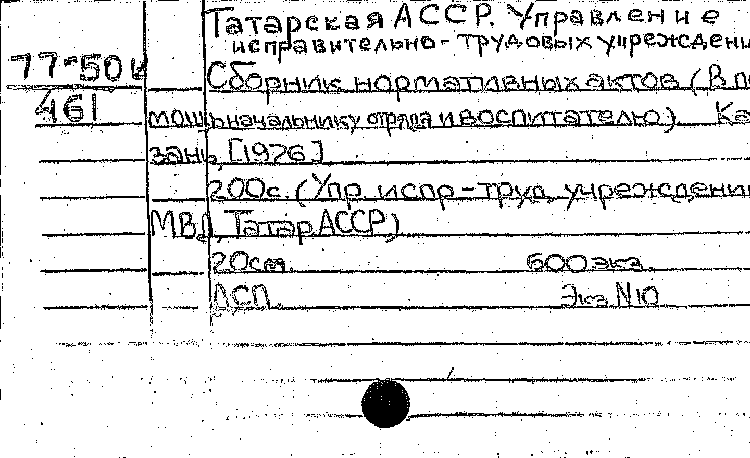 Татарская АССР. Управление
исправительно-трудовых учреждени
77-50к
461
Сборник нормативных актов (В по
мощь начальнику отряда и воспитателю) Ка
зань, [1976]
200с. (Упр. испр-труд. учреждени
МВД Татар АССР)
20см. 600 экз.
ДСП. Экз N10